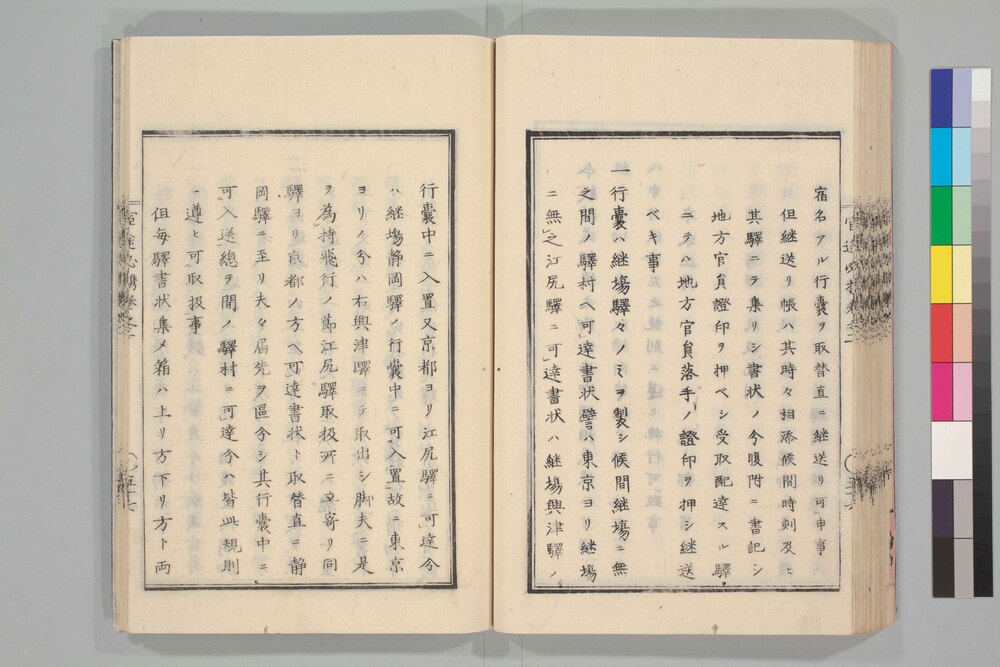 宿名アル行嚢ヲ取替直ニ継送リ可」申事
但継送リ帳ハ其時々相添候間時刻及ヒ
其驛ニテ集リシ書状ノ今腹附ニ書記シ
地方官員證印ヲ押ベシ受取配達スル驛
ニテハ地方官員落手ノ證印ヲ押シ継送
ベキ事
一行嚢ハ継塲驛々ノミヲ製シ候間継塲ニ無
之間ノ驛村ヘ可」達書状譬ハ東京ヨリ継塲
ニ無」之江尻驛ニ可」達書状ハ継塲興津驛ノ
行嚢中ニ入置又京都ヨリ江尻驛ニ可」達分
ハ継塲静岡驛ノ行嚢中ニ可」入置故ニ東京
ヨリノ分ハ右興津驛ニテ取出シ脚夫ニ是
ヲ為」持飛行ノ節江尻驛取扱所ニ立寄リ同
驛ヨリ京都ノ方ヘ可」達書状ト取替直ニ静
岡驛ニ至リ夫々届先ヲ區分シ其行嚢中ニ
可」入送總テ間ノ驛村ニ可」達分ハ皆此規則
ニ遵ヒ可取扱事
但毎驛書状集メ箱ハ上リ方下リ方ト両
官途必携巻之二